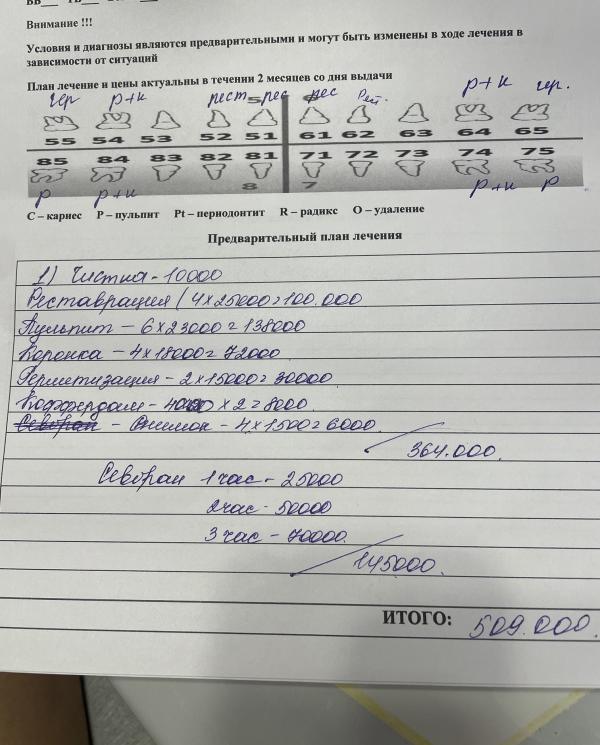 Внимание !!!
Условия и диагнозы являются предварительными и могут быть изменены в ходе лечения в
зависимости от ситуаций
План лечение и цены актуальны в течении 2 месяцев со дня выдачи
гер р+к рест рес рес Рест. р+к гер.
55 54 53 52 51 61 62 63 64 65
85 84 83 82 81 71 72 73 74 75
р р+к 8 7 р+к р
С – кариес Р – пульпит Pt – периодонтит R – радикс О – удаление
Предварительный план лечения
1) Чистка - 10000
Реставрация (4х25000=100.000
Пульпит – 6х23000=138000
Коронка – 4х18000=72000
Герметизация – 2х15000=30000
Коффердам – 4000 х2=8000
- Снимок - 4х1500=6000
364.000.
Севоран 1 час - 25000
2 час - 50000
3 час - 70000
145000.
ИТОГО: 509.000.